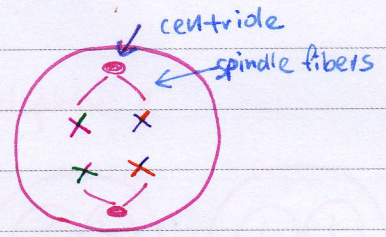 centriole
spindle fibers